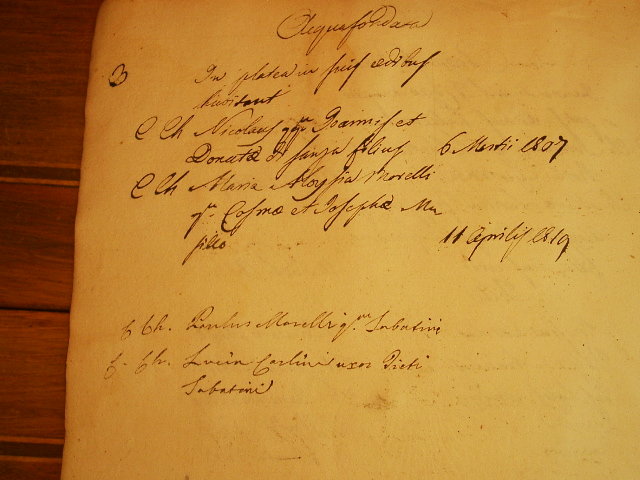 Acquafondata
3
In platea in suis ædibus
habitant
C Ch Nicolaus qm Joannis et
Donatæ di Sanza filius 6 Martii 1807
C Ch Maria Aloysia Morelli
qm Cosmæ et Josephæ Mu
sillo 11 Aprilis 1819
C Ch. Paulus Morelli qm Sabatini
C. Ch. Lucia Carlini uxor
Sabatini